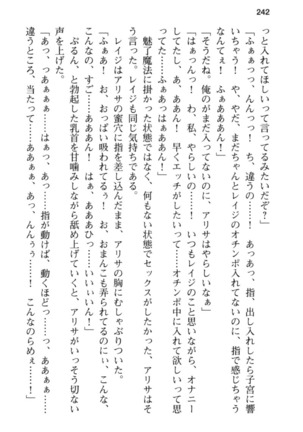 242
っと入れてほしいって言ってるみたいだぞ？」
「ふぁぁっっ、んんっっ！　ち、違うの……！　あっあっ、指、出し入れしたら子宮に響
いちゃう！　や、やだ、まだちゃんとレイジのオチンポ入れてないのに、指で感じちゃう
なんてぇ！　ふぁぁっっ！」
「そうだね。俺のがまだ入ってないのに、アリサはやらしいなぁ」
「ひゃっっんっ！　わ、私、やらしいの……！　いつもレイジのこと思いながら、オナニー
してて……あ、あ、ああん！　早くエッチがしたいって……オチンポ中に入れて欲しいって思
ってた……ふぁぁっはぁぁぁん！」
魅了魔法に掛かった状態ではなく、何もない状態でセックスがしたかった。アリサはそう思
ってくれていたらしい。レイジも同じ気持ちである。
レイジはアリサの蜜穴に指を差し込んだまま、アリサの胸にむしゃぶりついた。
「ふぁぁ！　お、おっぱい吸われてるぅ！　お、おまんこも弄られてるのに、こんな、
こんなの、すご……あああん！　はぁ、あああひっ……いいぃいん！」
ぷるん、と勃起した乳首を甘噛みしながら舐め上げていくと、アリサがいっそう切ない
声を上げた。
「ああぁっ、あっ……はぁっ、あっ……指が動けば、動くほどっ……っ、ああぁぁ……、
違うところ、当たって……ああぁぁ、あっ、んんぅぅ……！　こんなのらめぇ……！」